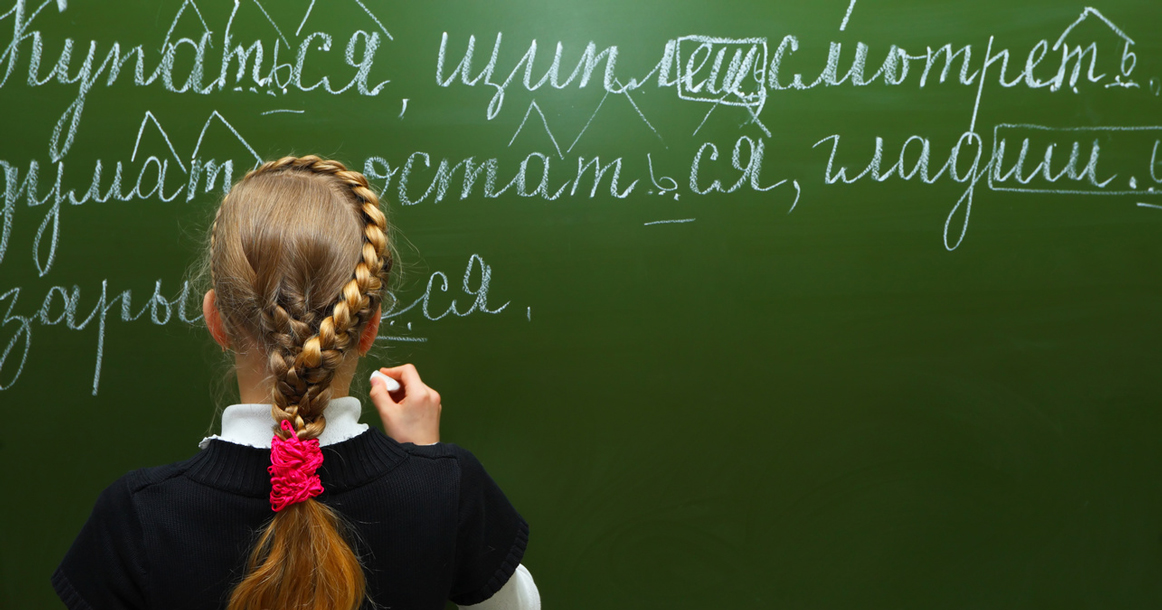 Купаться, щиплешь смотреть
думат остаться, гладишь
зары ся.